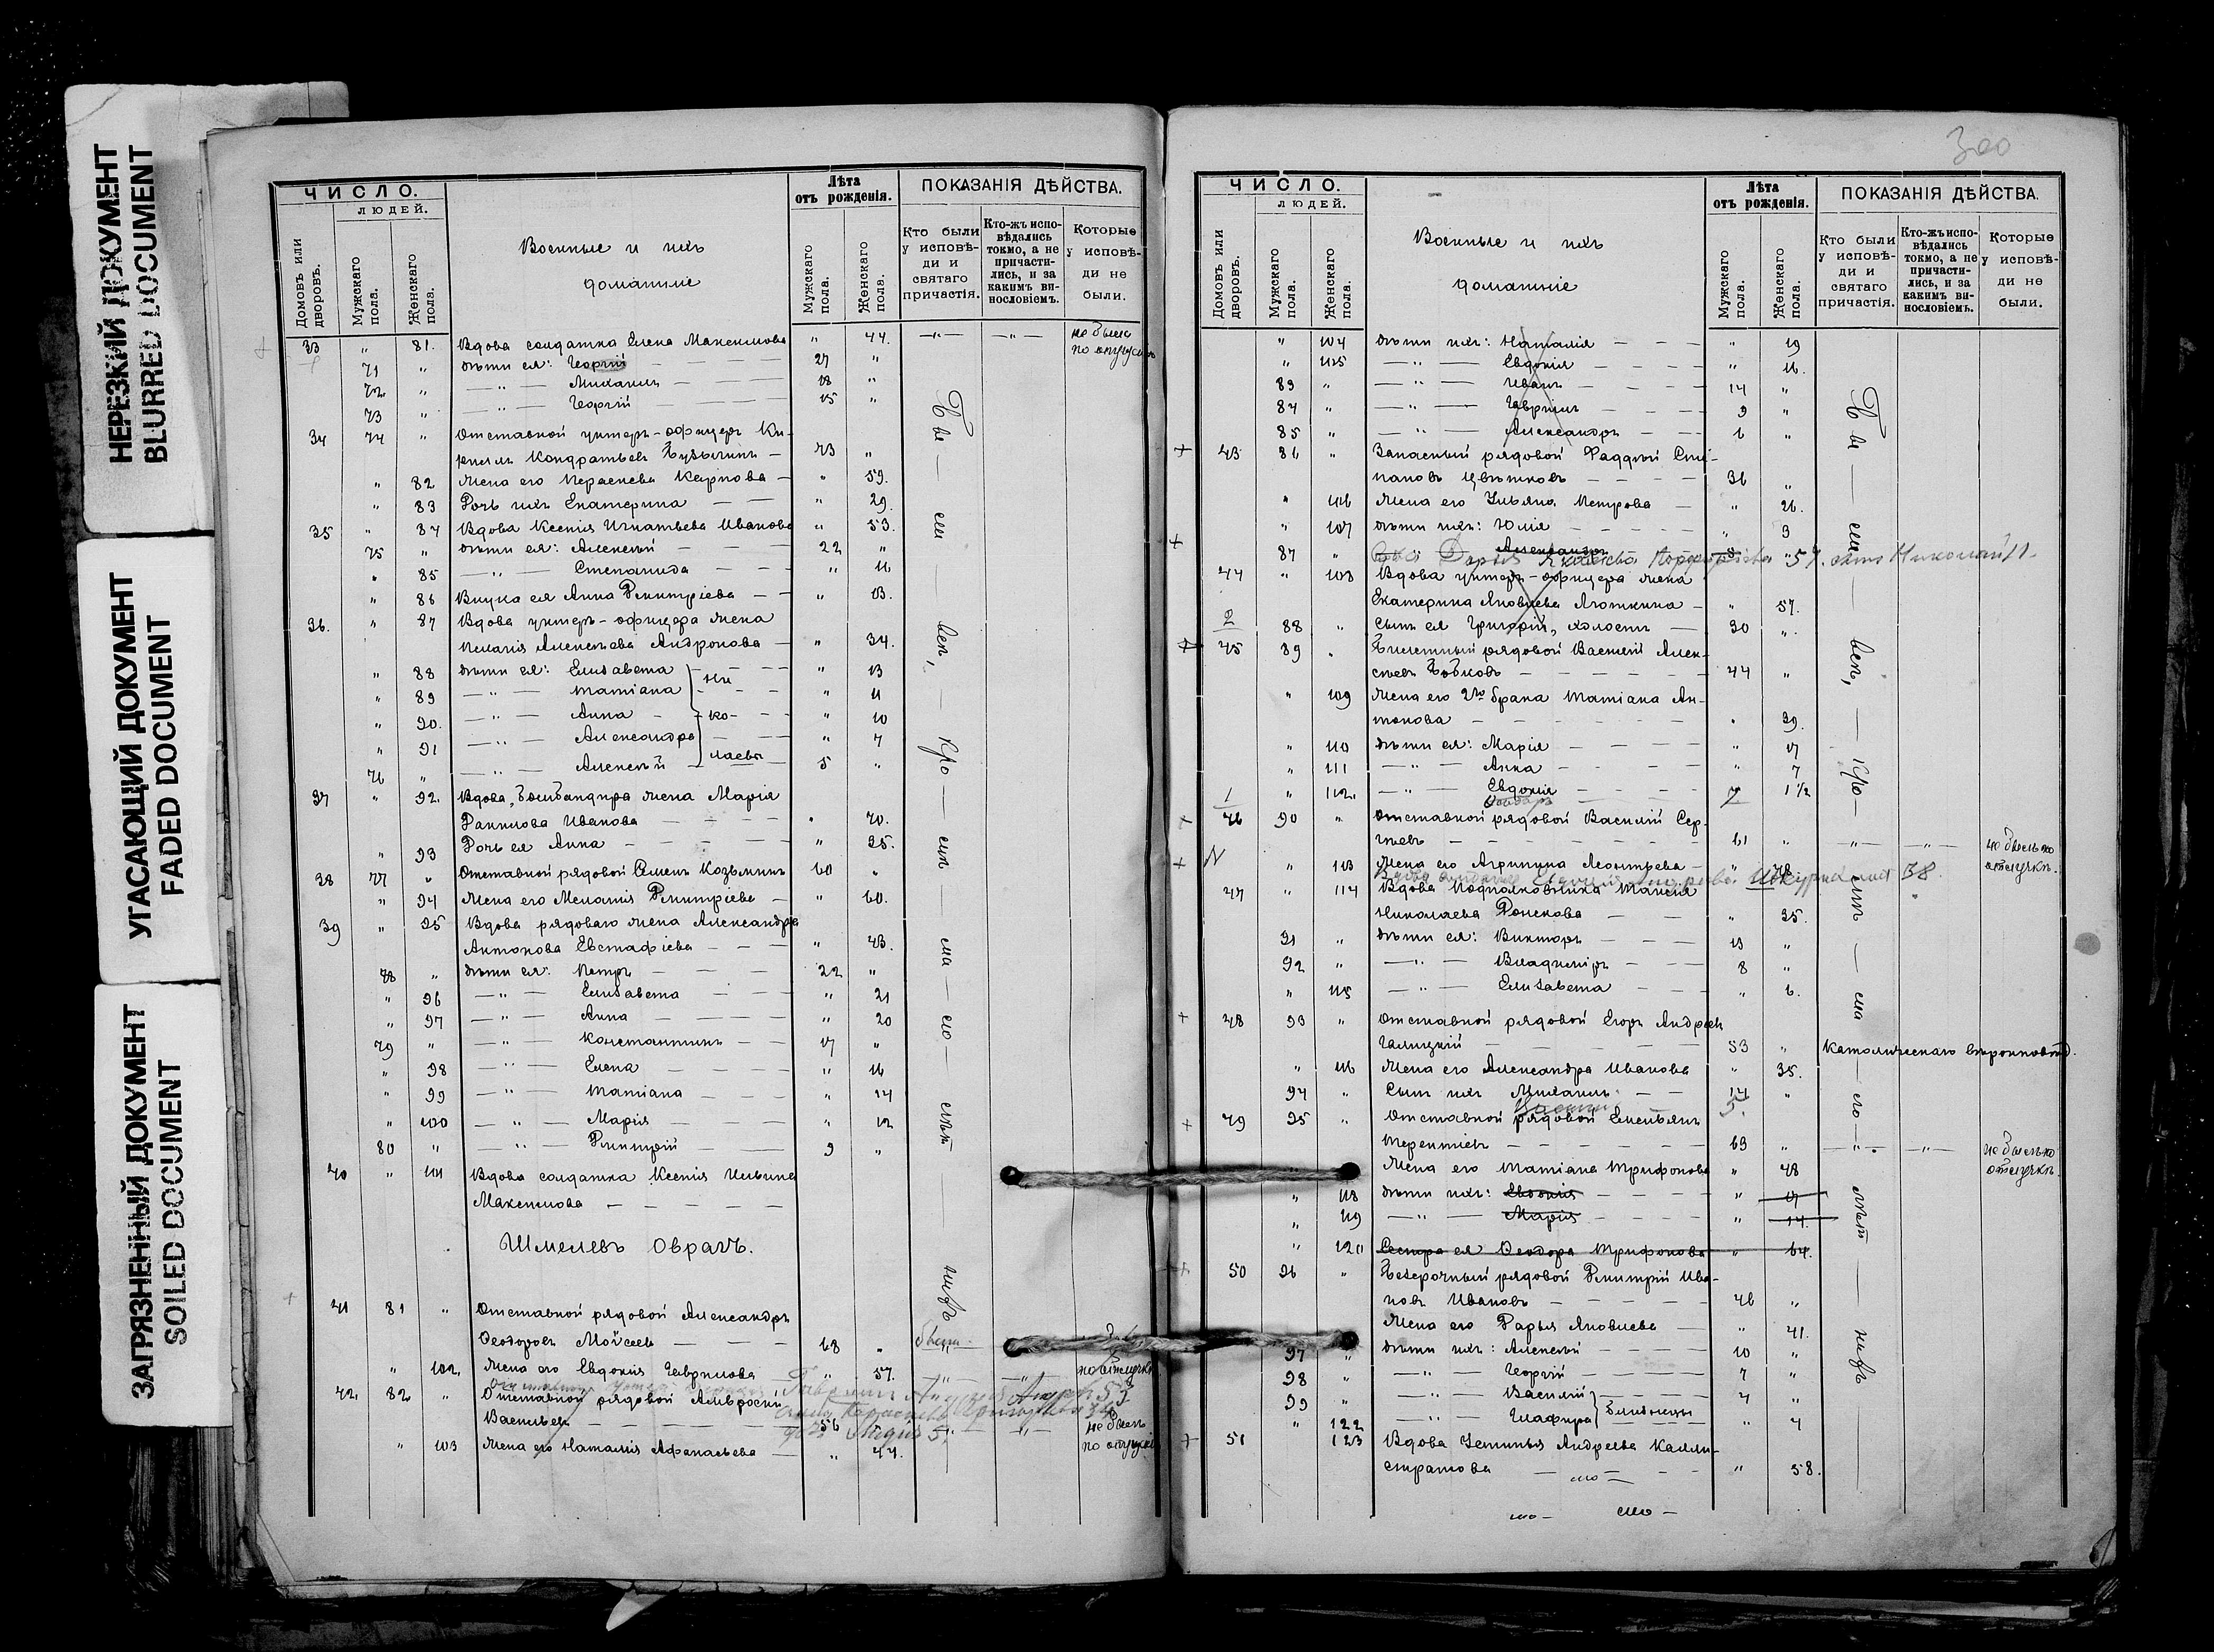 НЕРЕЗКИЙ ДОКУМЕНТ
BLURRED DOCUMENT
УГАСАЮЩИЙ ДОКУМЕНТ
FADED DOCUMENT
ЗАГРЯЗНЕННЫЙ ДОКУМЕНТ
SOILED DOCUMENT
ЧИСЛО.
ЛЮДЕЙ.
Домовъ или дворовъ.
Мужскаго пола.
Женскаго пола.
Военные и ихъ
домашніе
Лѣта
отъ рожденія.
Мужскаго пола.
Женскаго пола.
ПОКАЗАНІЯ ДѢЙСТВА.
Кто были у исповѣ-ди и святаго причастія.
Кто-жъ испо-вѣдались токмо, а не причасти-лись, и за какимъ ви-нословіемъ.
Которые у исповѣ-ди не были.
33 " 81. Вдова солдатка Елена Максимова " 44. —"— —"— не была
по опущ.
71 " дѣти ея: Георгій 27 "
72 " —"— Михаилъ — 18 "
73 " —"— Георгій — 15 "
34 74 " Отставной унтеръ-офицеръ Ки-
риллъ Кондратьевъ — 73 "
" 82 Жена его Параскева Карпова — " 59.
" 83 Дочь ихъ Екатерина — " 29.
35 " 84 Вдова Ксенія Игнатьева Иванова " 53.
75 " дѣти ея: Алексѣй — 22 "
" 85 —"— Степанида — " 16
" 86 Внука ея Анна Димитріева — " 13.
36. " 87 Вдова унтеръ-офицера жена
Пелагія Алексѣева Андронова — " 34.
" 88 дѣти ея: Елисавета — Ни- " 13
" 89 —"— Татіана " 11
" 90. —"— Анна — -ко- " 10
" 91 —"— Александра " 7
76 " —"— Алексѣй — лаевы 5 "
37 " 92. Вдова, Бомбандира жена Марія
Данилова Иванова — " 70.
" 93 Дочь ея Анна — " 35.
38 77 " Отставной рядовой Семенъ Козьминъ 60 "
" 94 Жена его Меланія Димитріева — " 60.
39 " 95 Вдова рядоваго жена Александра
Антонова Евстафіева — " 43.
78 " дѣти ея: Петръ — 22 "
" 96 —"— Елисавета — " 21
" 97 —"— Анна — " 20
79 " —"— Константинъ — 17 "
" 98 —"— Елена — " 16
" 99 —"— Татіана — " 14
" 100 —"— Марія — " 12
80 " —"— Димитрій — 9 "
40 " 101 Вдова солдатка Ксенія Ильина
Максимова —
Шмелевъ Оврагъ.
41 81 " Отставной рядовой Александръ
Ѳеодоровъ Мойсеевъ — 68 "
" 102. Жена его Евдокія Гаврилова — " 57. по отлучкѣ
42. 82 " Отставной рядовой Амвросій
Васильевъ — 56 " не былъ
" 103 Жена его Наталія Афанасьева — " 44. по опущ.
300
ЧИСЛО.
ЛЮДЕЙ.
Домовъ или дворовъ.
Мужскаго пола.
Женскаго пола.
Военные и ихъ
домашніе
Лѣта
отъ рожденія.
Мужскаго пола.
Женскаго пола.
ПОКАЗАНІЯ ДѢЙСТВА.
Кто были у исповѣ-ди и святаго причастія.
Кто-жъ испо-вѣдались токмо, а не причасти-лись, и за какимъ ви-нословіемъ.
Которые у исповѣ-ди не были.
" 104 дѣти ихъ: Наталія — " 19
" 105 —"— Евдокія — " 16.
83 " —"— Иванъ — 14 "
84 " —"— Гавріилъ — 9 "
85 " —"— Александръ — 6 "
43 86 " Запасный рядовой Фаддей Сте-
пановъ Цвѣтковъ — 36 "
" 106 Жена его Ульяна Петрова — " 26.
" 107 дѣти ихъ: Юлія — " 3
87 " Александръ
44 " 108 Вдова унтеръ-офицера жена
Екатерина Яковлева Люткина — " 57.
2 88 " Сынъ ея Григорій, холостъ — 30 "
45 89 " Билетный рядовой Василій Алек-
сѣевъ Бобковъ — 44 "
" 109 Жена его 2го брака Татіана Ан-
тонова — " 39.
" 110 дѣти ея: Марія — " 17
" 111 —"— Анна — " 7
1 " 112. —"— Евдокія — " 1 1/2
46 90 " Отставной рядовой Василій Сер-
гѣевъ — 61 " —"— —"— не былъ по
" 113 Жена его Агрипина Леонтьева — " 48 отлучкѣ.
47 " 114 Вдова Подполковника Таисія
Николаева Донскова — " 35.
91 " дѣти ея: Викторъ — 13 "
92 " —"— Владиміръ — 8 "
" 115 —"— Елисавета — " 6.
48 93 " Отставной рядовой Егоръ Андреевъ
Галицкій — 53 " Католическаго вѣроисповѣд.
" 116 Жена его Александра Иванова " 35.
94 " Сынъ ихъ Михаилъ — 14 "
49 95 " Отставной рядовой Емельянъ
Терентіевъ — 69 " —"— —"— не былъ по
Жена его Татіана Трифонова " 48 отлучкѣ.
" 118 дѣти ихъ: Евдокія — " 17
" 119 —"— Марія — " 14.
" 120 Сестра ея Ѳеодора Трифонова " 64.
50 96 " Безсрочный рядовой Димитрій Ива-
новъ Ивановъ — 46 "
Жена его Дарья Яковлева — " 41.
97 " дѣти ихъ: Алексѣй — 10 "
98 " —"— Георгій — 7 "
99 " —"— Василій — близнецы 4 "
" 122 —"— Глафира " 4
51 123 Вдова Устинья Андреева Калли-
стратова — " 58.